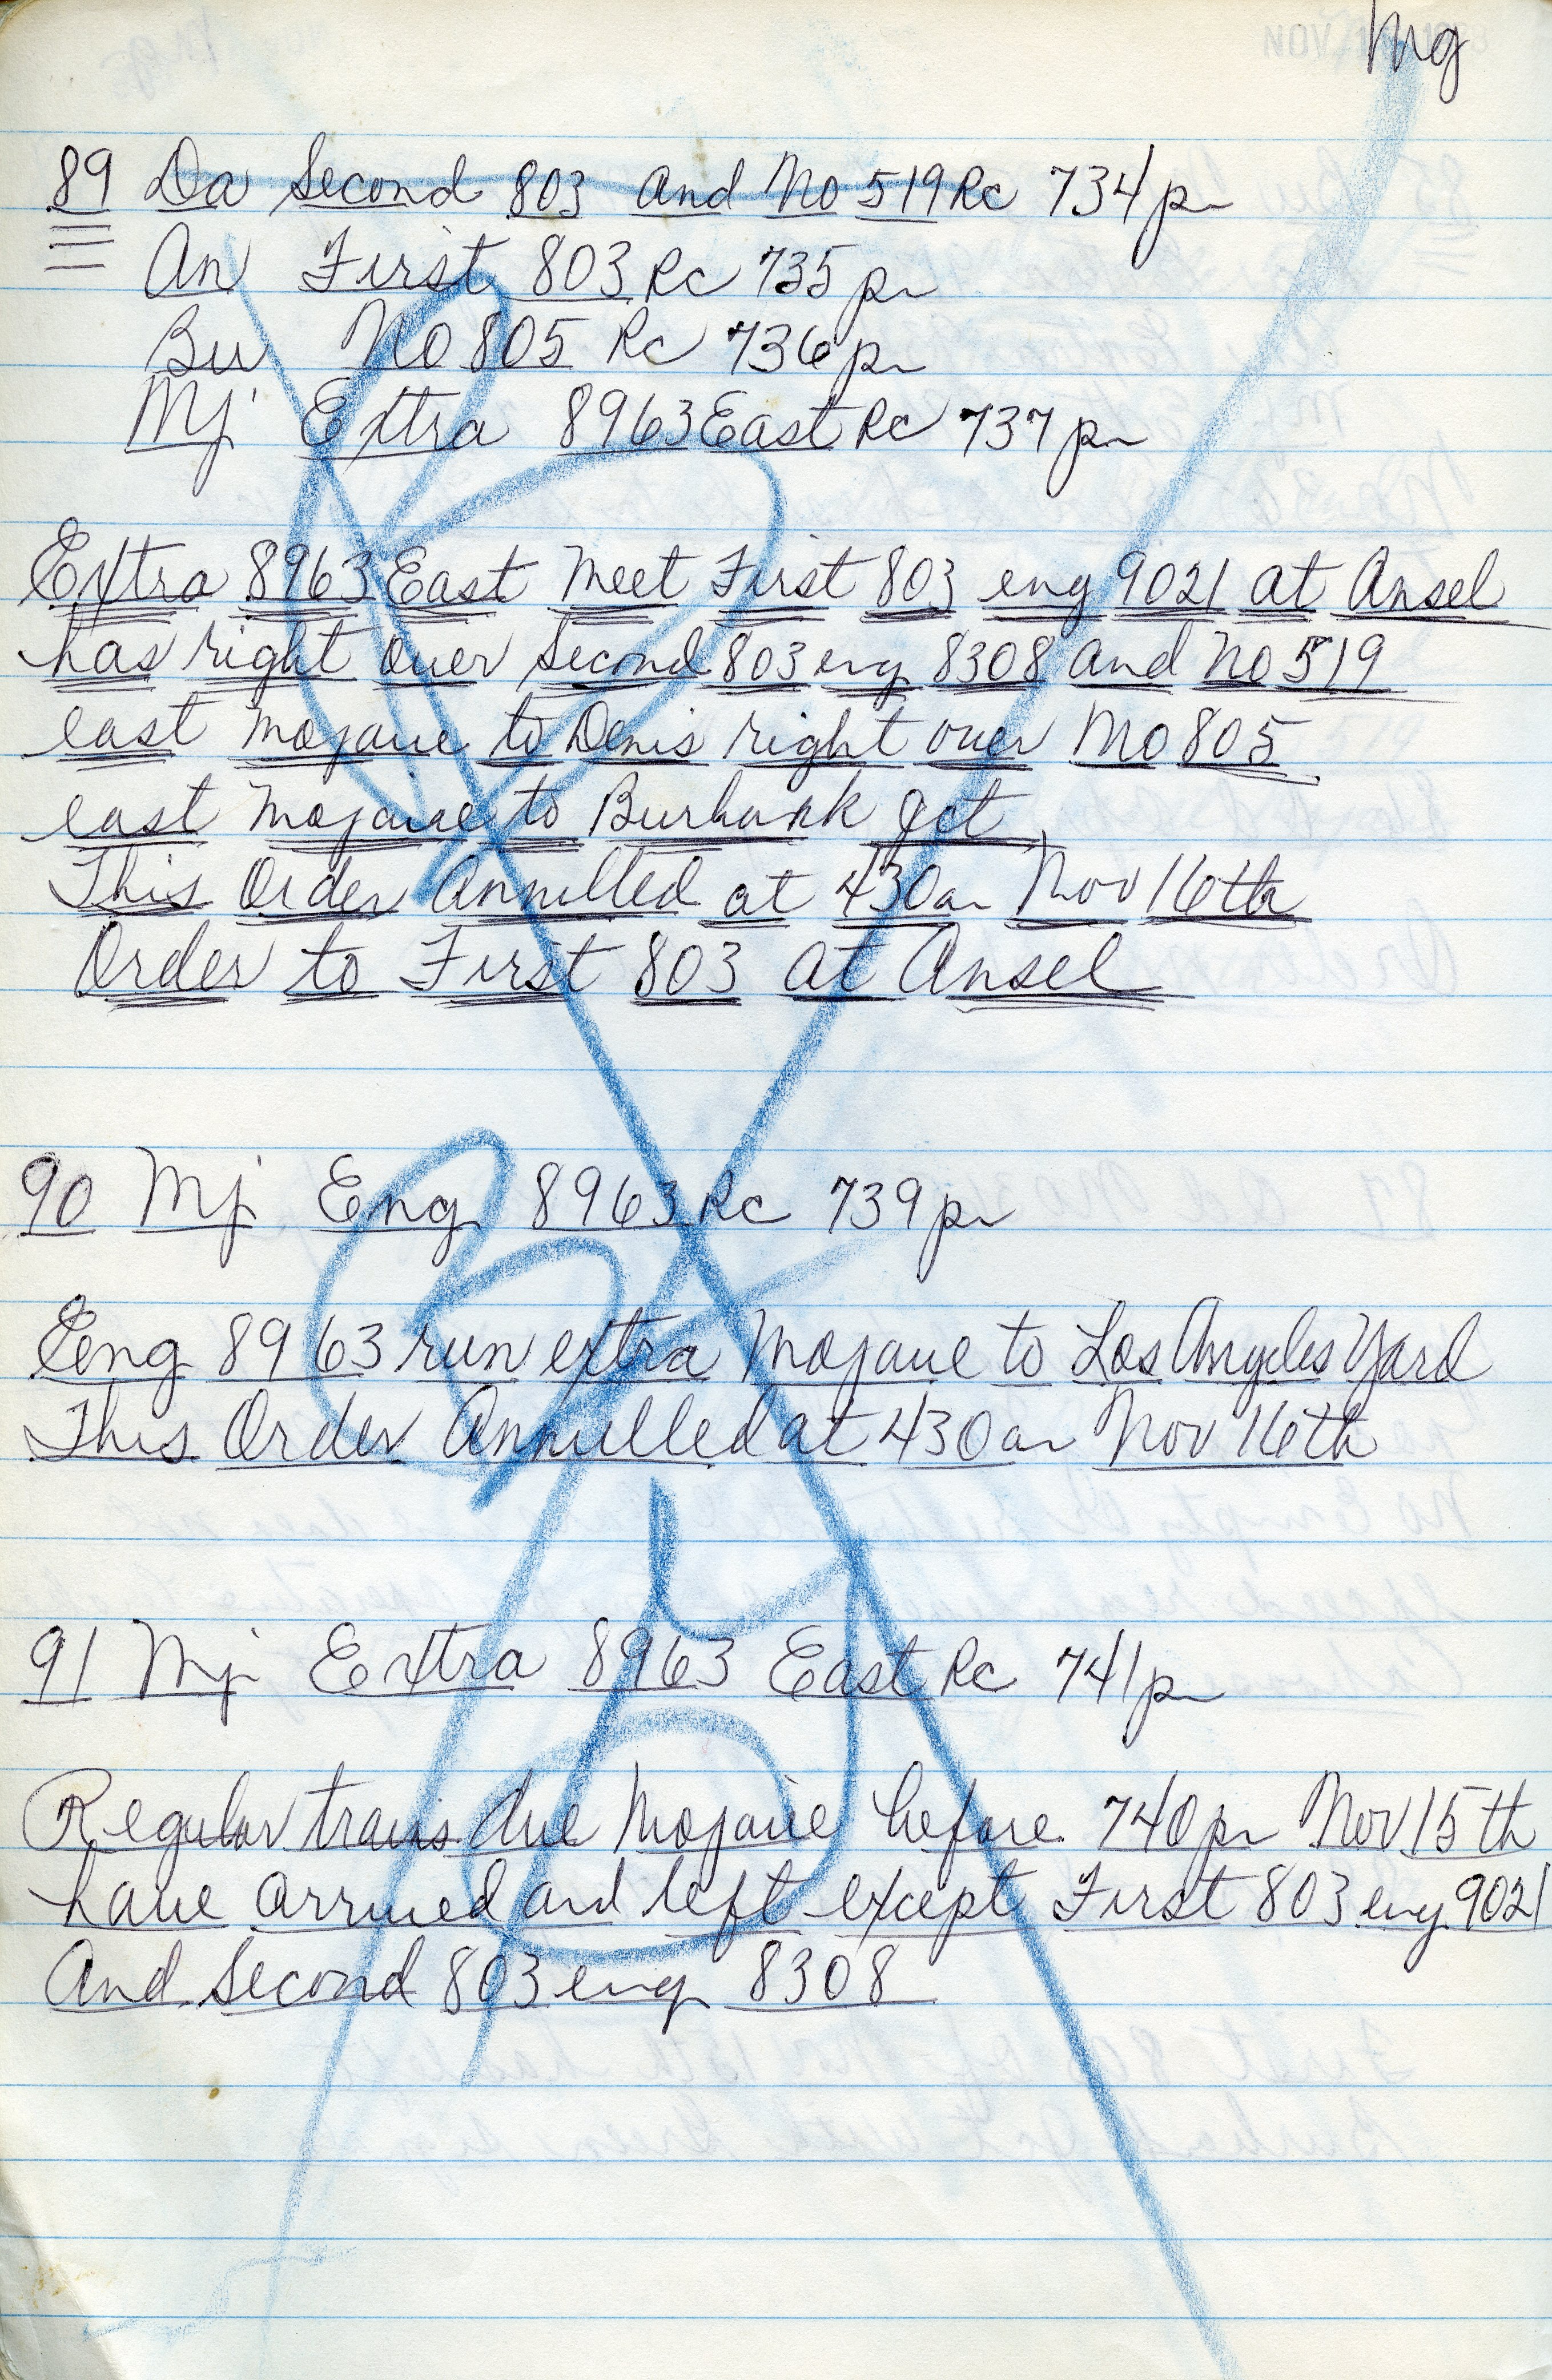 Mg
89 Da Second 803 and No 519 Rc 734 pm
An First 803 Rc 735 pm
Bu No 805 Rc 736 pm
Mj Extra 8963 East Rc 737 pm
Extra 8963 East Meet First 803 eng 9021 at Ansel
has right over Second 803 eng 8308 and No 519
east Mojave to Denis right over No 805
east Mojave to Burbank Jct
This Order Annulled at 430 am Nov 16th
Order to First 803 at Ansel
90 Mj Eng 8963 Rc 739 pm
Eng 8963 run extra Mojave to Los Angeles Yard
This Order Annulled at 430 am Nov 16th
91 Mj Extra 8963 East Rc 741 pm
Regular trains due Mojave before 740 pm Nov 15th
have arrived and left except First 803 eng 9021
And Second 803 eng 8308